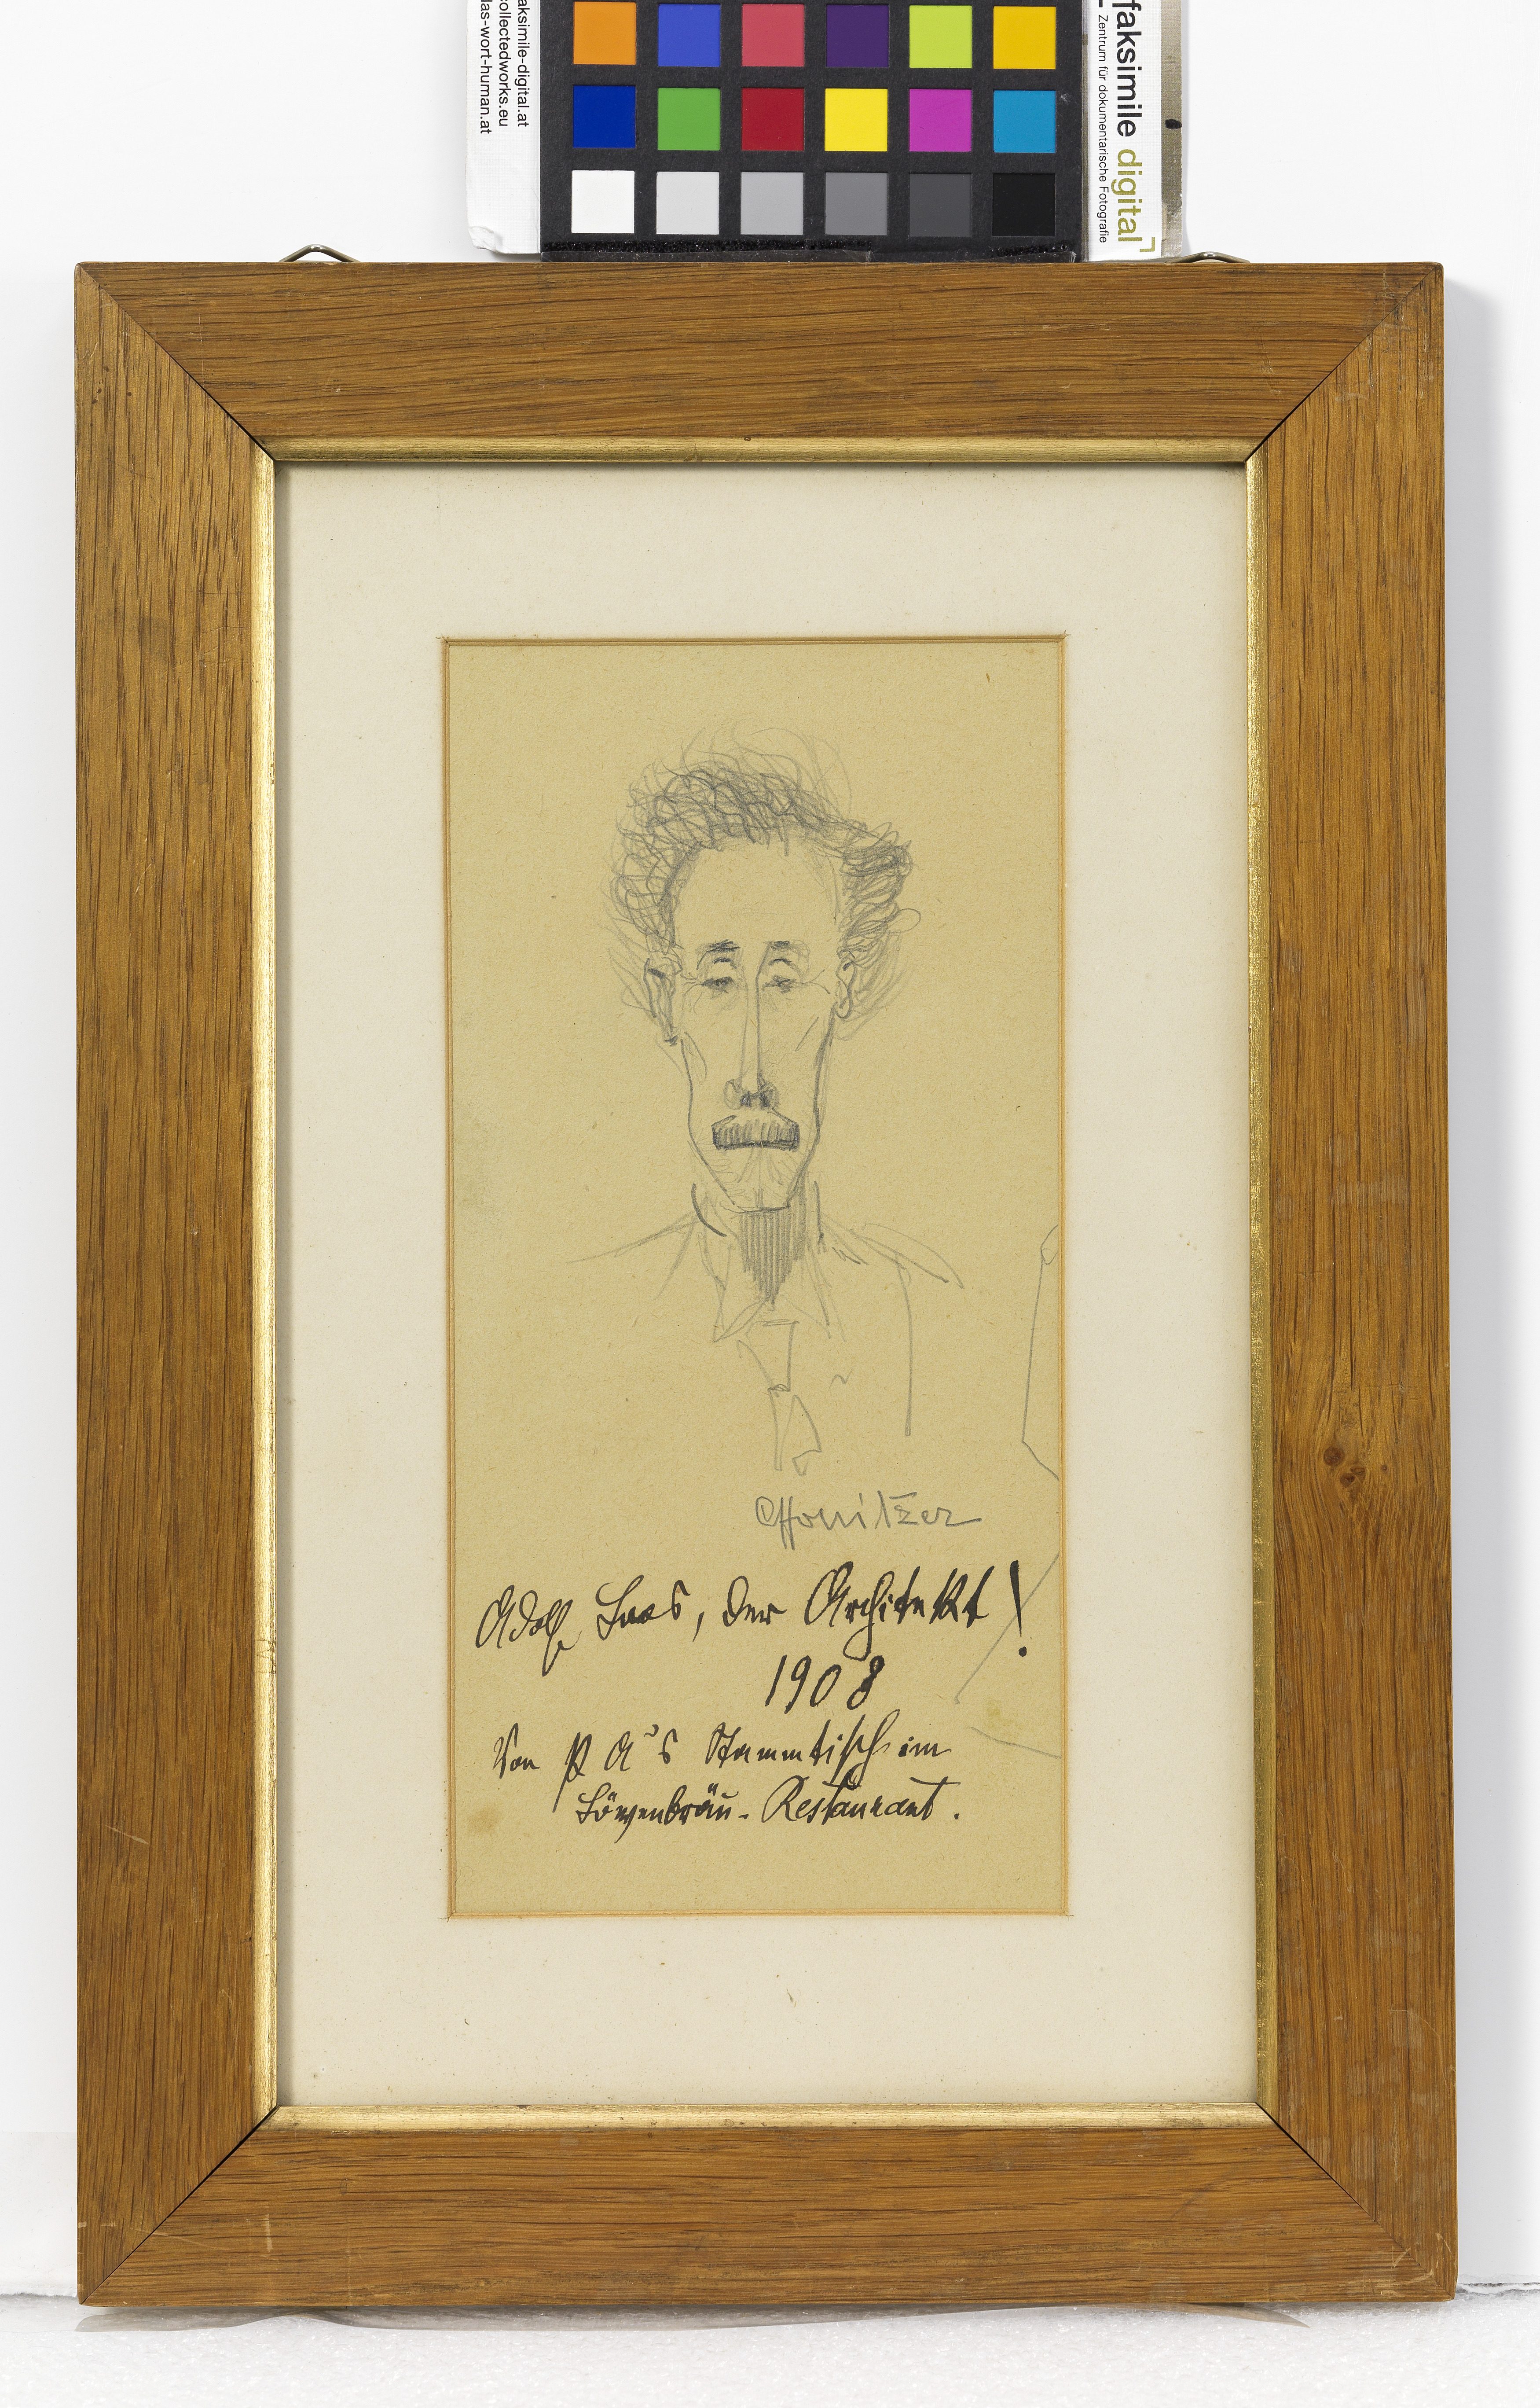 faksimile-digital.at
collectedworks.eu
das-wort-human.at
faksimile digital
Zentrum für dokumentarische Fotografie
Adolf Loos, der Architekt!
1908
Von PA's Stammtisch im
Löwenbräu-Restaurant.